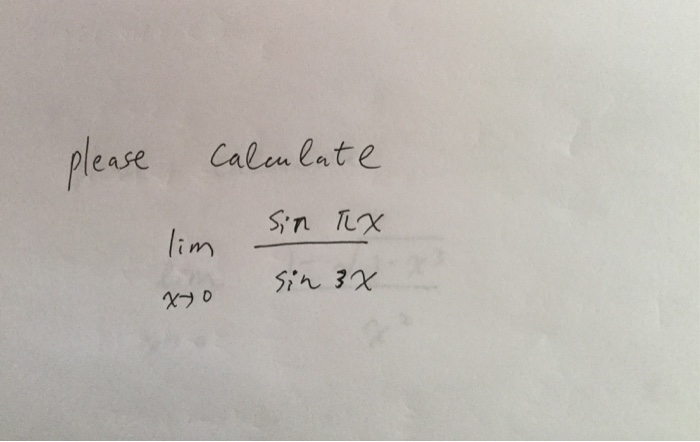 please calculate
lim x→0 sin πx / sin 3x